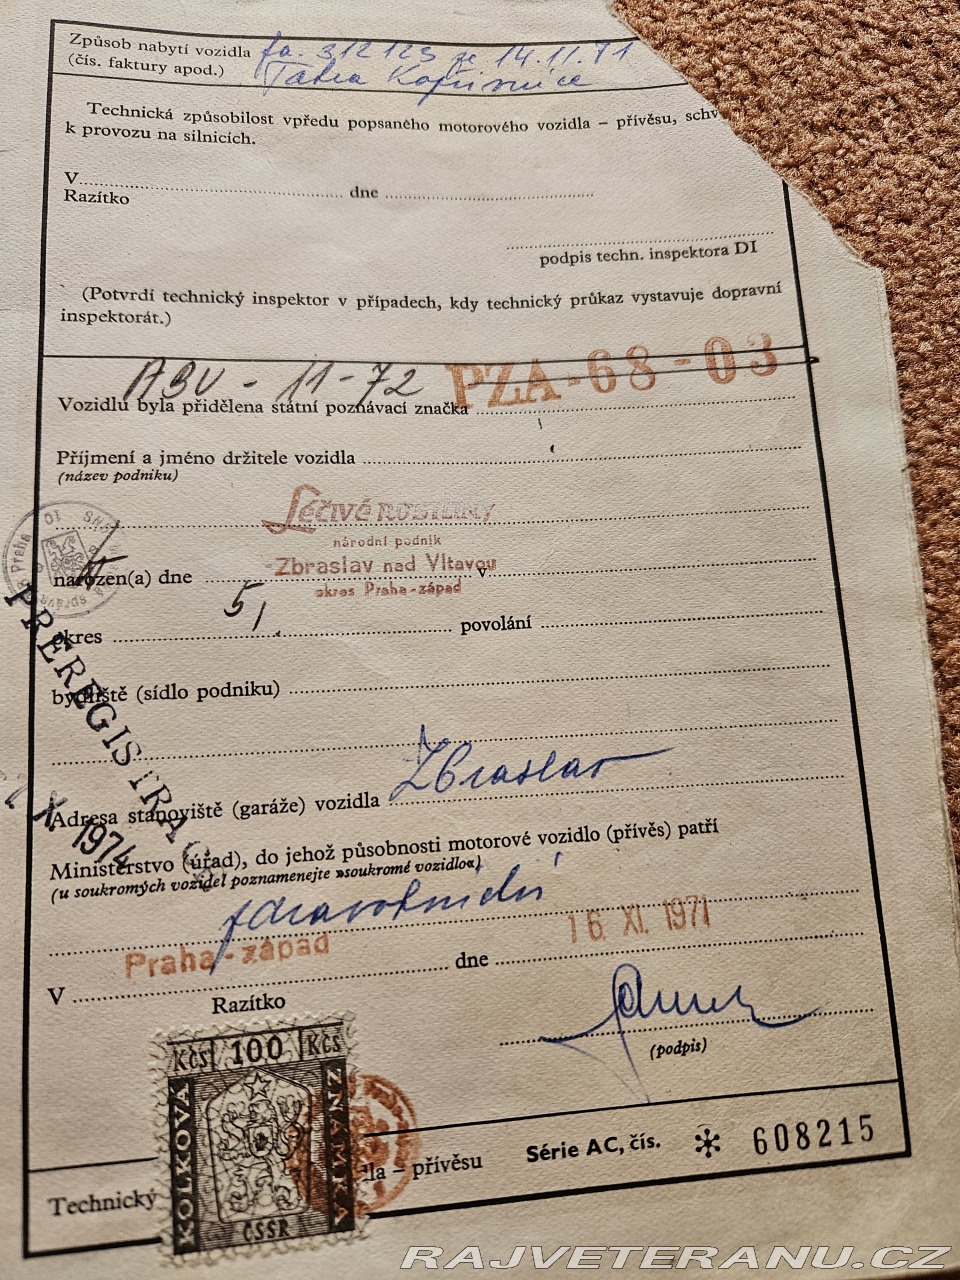 Způsob nabytí vozidla fa. 312123 ze 14.11.71
(čís. faktury apod.) Tatra Kopřivnice
Technická způsobilost vpředu popsaného motorového vozidla – přívěsu, schv
k provozu na silnicích.
V dne
Razítko
podpis techn. inspektora DI
(Potvrdí technický inspektor v případech, kdy technický průkaz vystavuje dopravní
inspektorát.)
ABV - 11-72 PZA-68-03
Vozidlu byla přidělena státní poznávací značka
Příjmení a jméno držitele vozidla
(název podniku)
Léčivé ROSTLINY
národní podnik
Zbraslav nad Vltavou
okres Praha-západ
narozen(a) dne v
5,
okres povolání
bydliště (sídlo podniku)
PREREGISTRACE
X. 1974
Adresa stanoviště (garáže) vozidla Zbraslav
Ministerstvo (úřad), do jehož působnosti motorové vozidlo (přívěs) patří
(u soukromých vozidel poznamenejte »soukromé vozidlo«)
zdravotnictví
Praha-západ 16. XI. 1971
V dne
Razítko
(podpis)
Kčs 100 Kčs
KOLKOVÁ
ZNÁMKA
ČSSR
Technický dla – přívěsu Série AC, čís. * 608215
RAJVETERANU.CZ